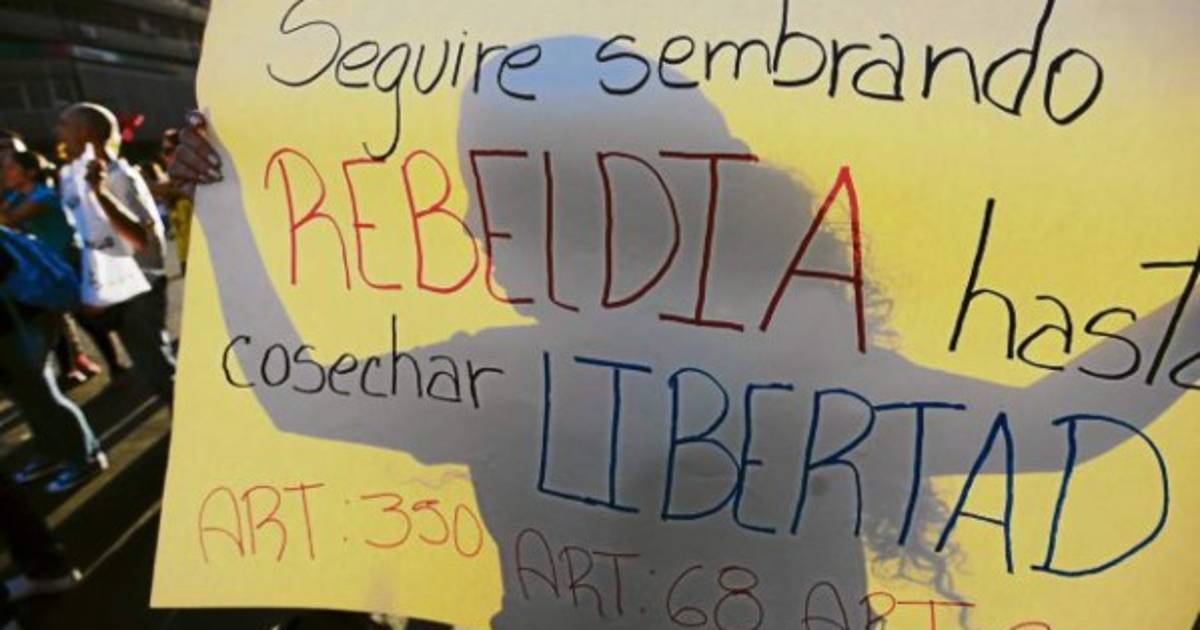 Seguire sembrando
REBELDIA hasta
cosechar LIBERTAD
ART: 350 ART: 68 ART